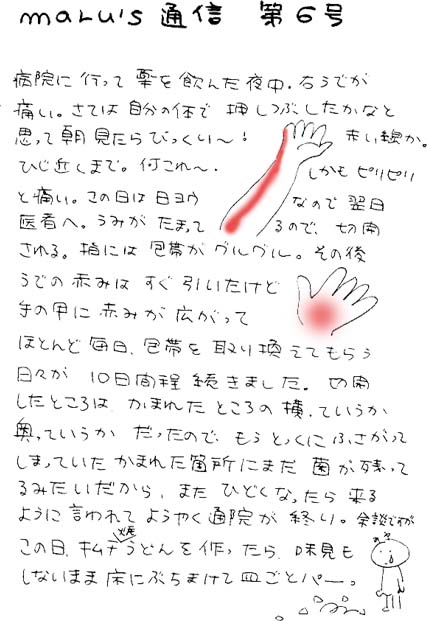 maru's 通信 第6号
病院に行って薬を飲んだ夜中、右うでが
痛い。さては自分の体で押しつぶしたかなと
思って朝見たらびっくり〜! 赤い線が。
ひじ近くまで。何これ〜。しかもピリピリ
と痛い。この日は日ヨウ なので翌日
医者へ。うみがたまって るので、切開
される。指には包帯がグルグル。その後
うでの赤みはすぐ引いたけど
手の甲に赤みが広がって
ほとんど毎日、包帯を取り換えてもらう
日々が10日間程続きました。切開
したところは、かまれたところの横、ていうか
奥っていうかだったので、もうとっくにふさがって
しまっていたかまれた箇所にまだ菌が残って
るみたいだから、またひどくなったら来る
ように言われてようやく通院が終り。余談ですが
この日、キムチうどんを作ったら、味見も
しないまま床にぶちまけて皿ごとパー。